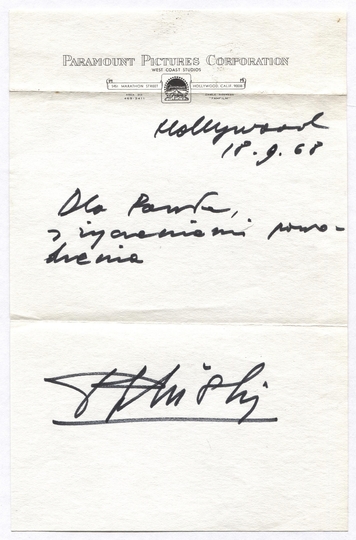 PARAMOUNT PICTURES CORPORATION
WEST COAST STUDIOS
5451 MARATHON STREET
HOLLYWOOD CALIF. 90038
Hollywood
18.9.68
Dla Pawła,
z życzeniami powo-
dzenia